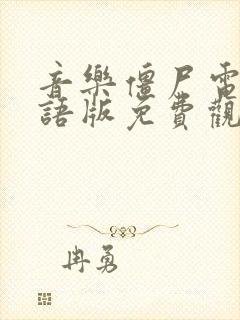 音樂僵尸電
語版免費觀
冉勇